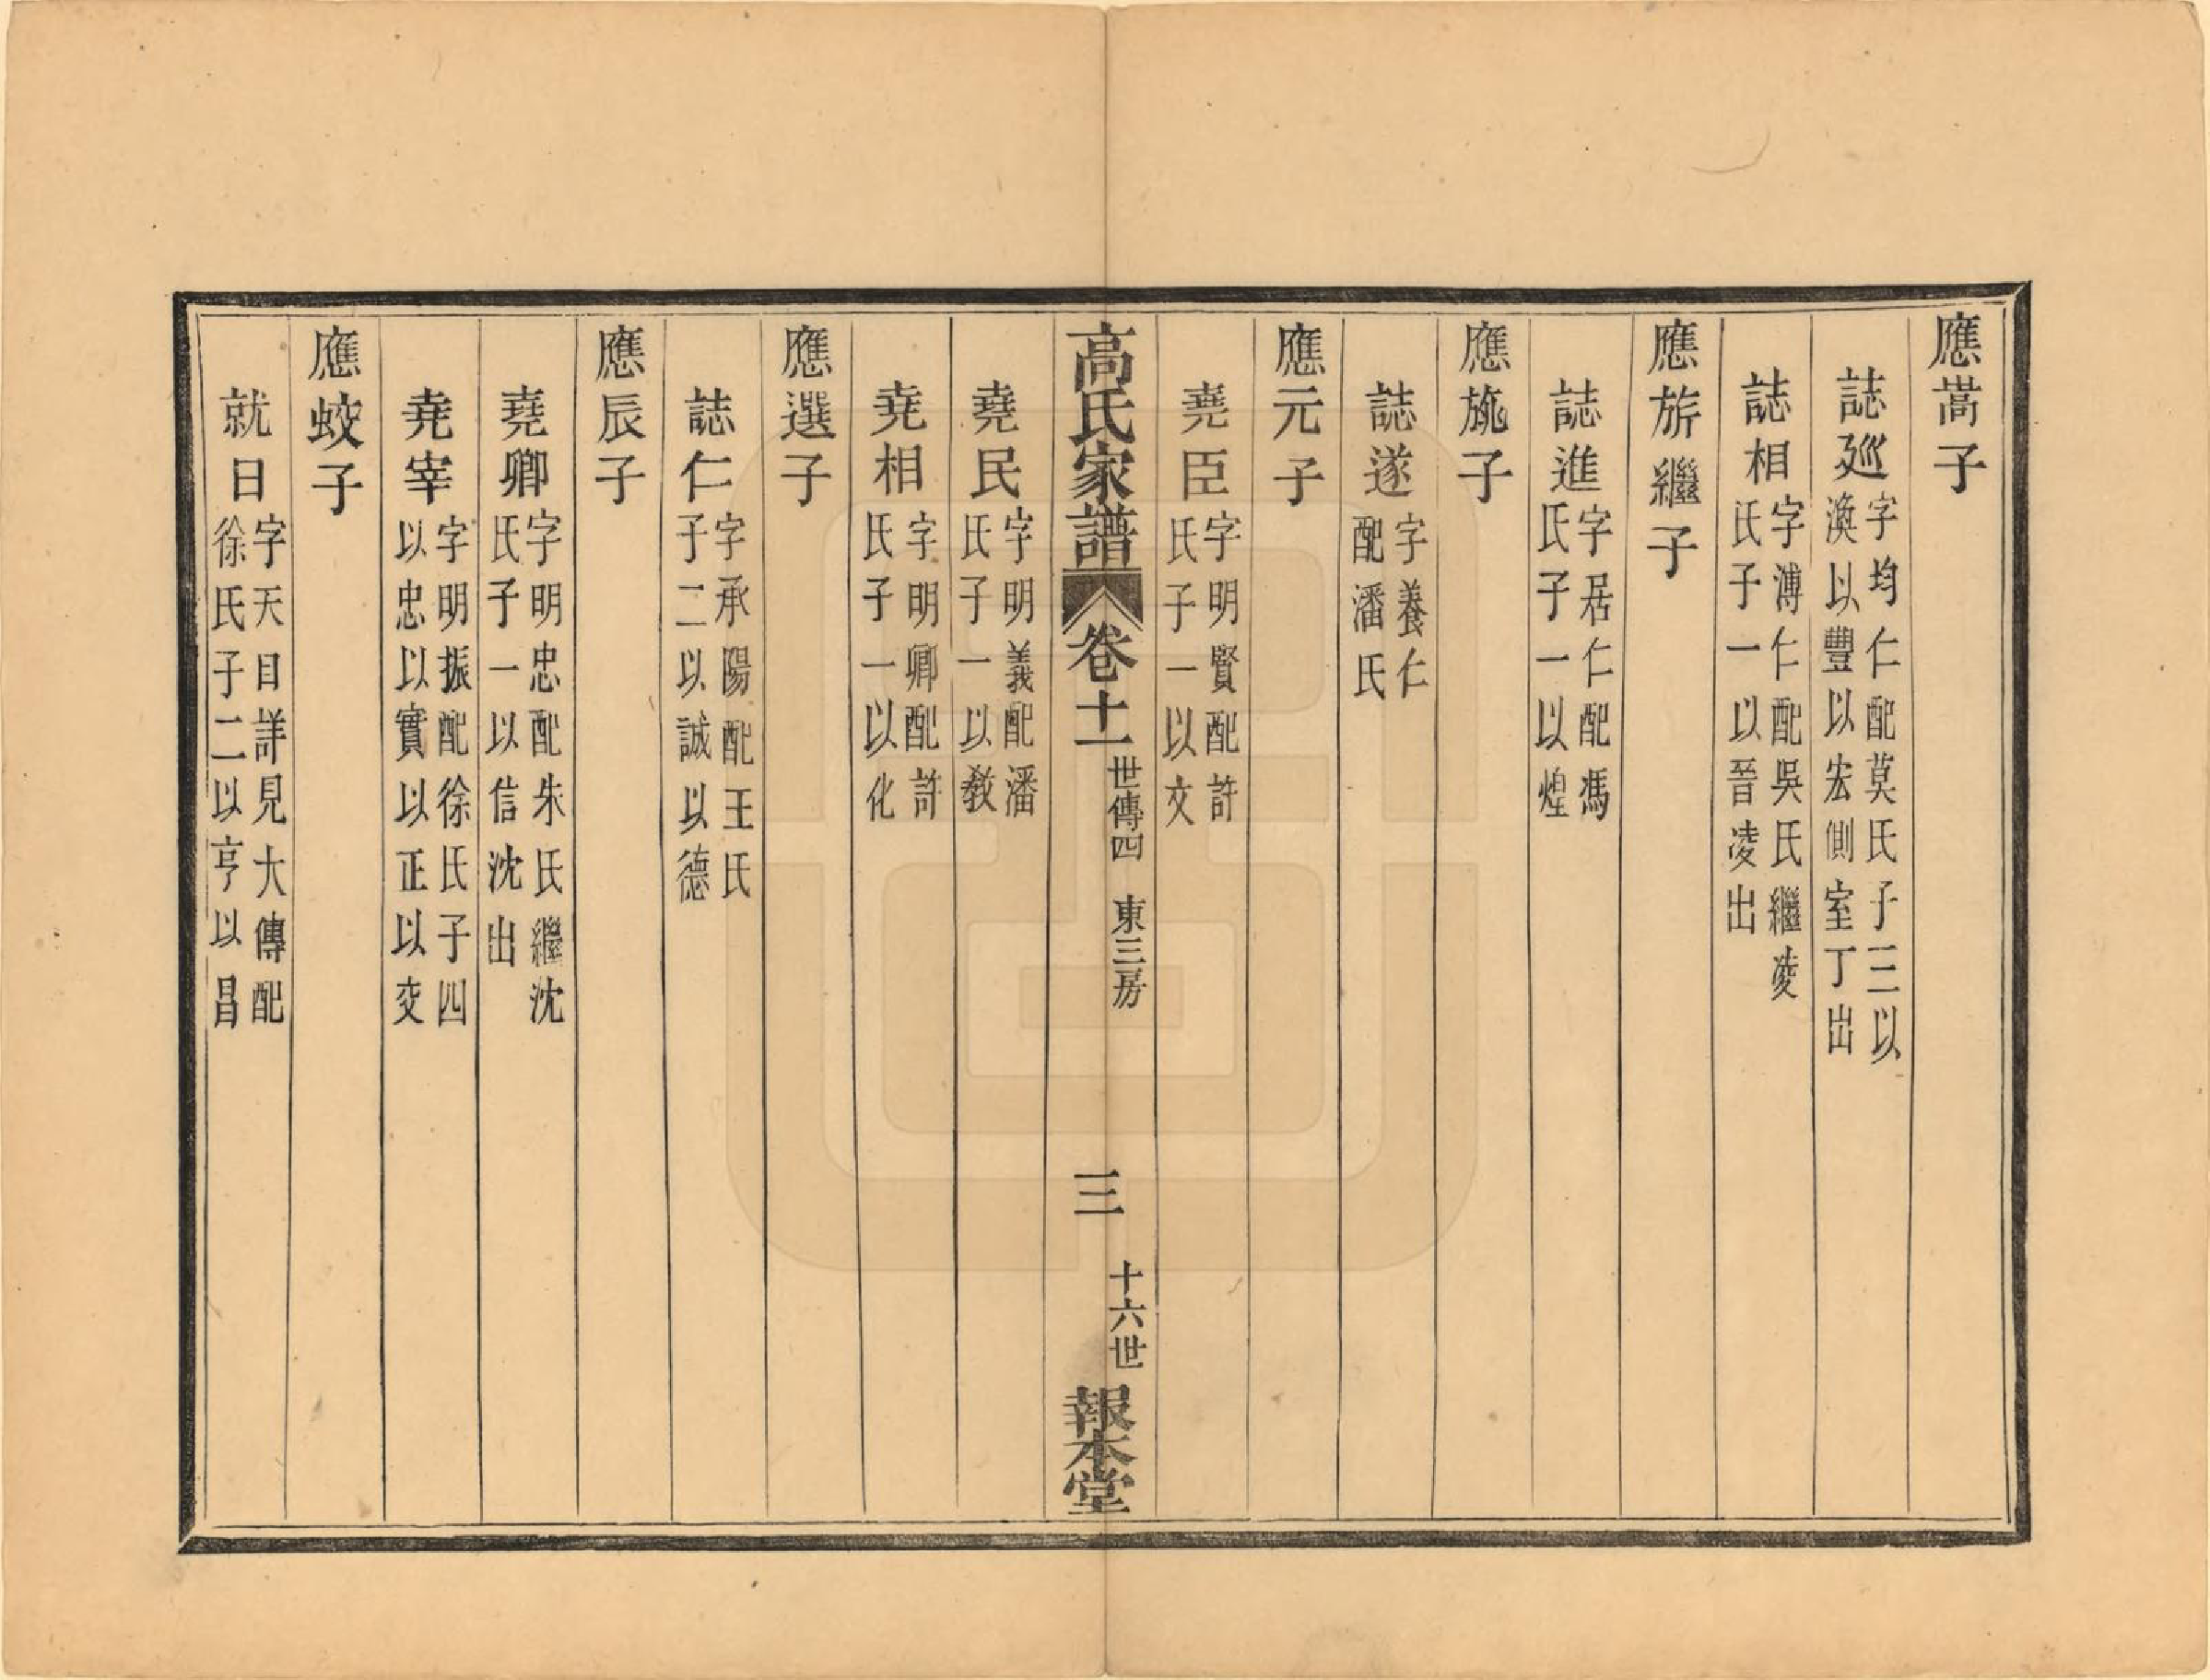 應嵩子
誌廵
字均仁配莫氏子三以
渙以豐以宏側室丁出
誌相
字溥仁配吳氏繼凌
氏子一以晉凌出
應旂繼子
誌進
字居仁配馮
氏子一以煌
應旒子
誌遂
字養仁
配潘氏
應元子
堯臣
字明賢配許
氏子一以文
高氏家譜
卷十一
世傳四 東三房
三
十六世
報本堂
堯民
字明義配潘
氏子一以教
堯相
字明卿配許
氏子一以化
應選子
誌仁
字承陽配王氏
子二以誠以德
應辰子
堯卿
字明忠配朱氏繼沈
氏子一以信沈出
堯宰
字明振配徐氏子四
以忠以實以正以交
應蛟子
就日
字天目詳見大傳配
徐氏子二以亨以昌